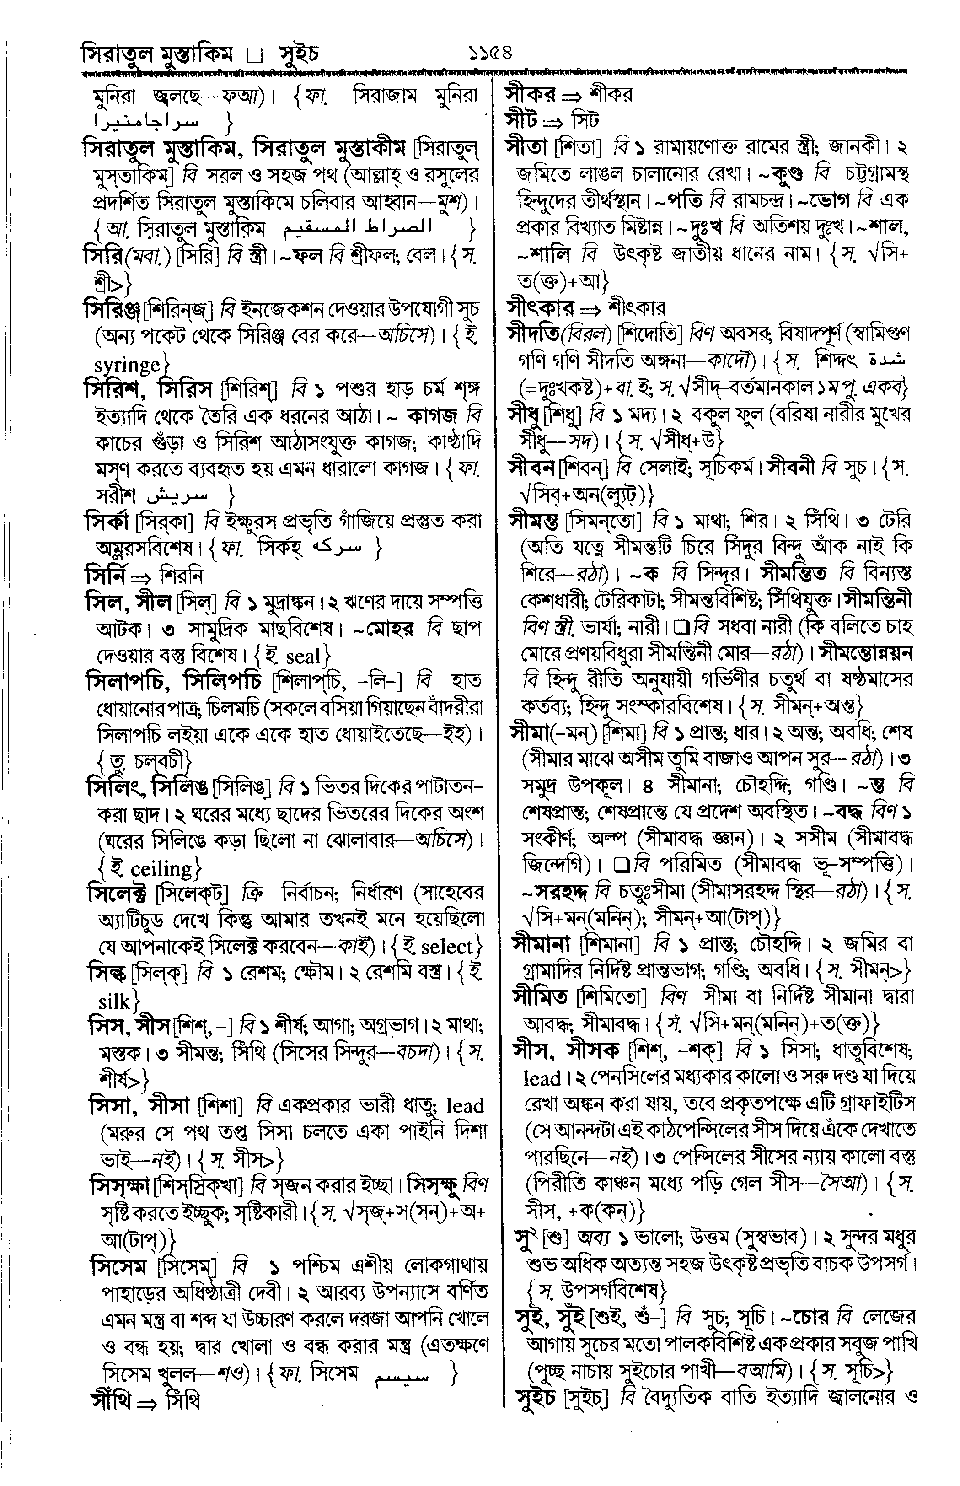 সিরাতুল মুস্তাকিম □ সুইচ
১১৫৪
মুনিরা জ্বলছে—ফআ)। {ফা. সিরাজাম মুনিরা
سراجامنيرا }
সিরাতুল মুস্তাকিম, সিরাতুল মুস্তাকীম [সিরাতুল্
মুস্তাকিম] বি সরল ও সহজ পথ (আল্লাহ্ ও রসুলের
প্রদর্শিত সিরাতুল মুস্তাকিমে চলিবার আহ্বান—মুশ)।
{আ. সিরাতুল মুস্তাকিম الصراط المستقيم }
সিরি(মবা.) [সিরি] বি স্ত্রী। ~ফল বি শ্রীফল; বেল। {স.
শ্রী>}
সিরিঞ্জ [শিরিন্‌জ্] বি ইনজেকশন দেওয়ার উপযোগী সুচ
(অন্য পকেট থেকে সিরিঞ্জ বের করে—অচিসে)। {ই.
syringe}
সিরিশ, সিরিস [শিরিশ্] বি ১ পশুর হাড় চর্ম শৃঙ্গ
ইত্যাদি থেকে তৈরি এক ধরনের আঠা। ~ কাগজ বি
কাচের গুঁড়া ও সিরিশ আঠাসংযুক্ত কাগজ; কাষ্ঠাদি
মসৃণ করতে ব্যবহৃত হয় এমন ধারালো কাগজ। {ফা.
সরীশ سريش }
সির্কা [সির্‌কা] বি ইক্ষুরস প্রভৃতি গাঁজিয়ে প্রস্তুত করা
অম্লরসবিশেষ। {ফা. সির্কহ্ سركه }
সির্নি ⇒ শিরনি
সিল, সীল [সিল্] বি ১ মুদ্রাঙ্কন। ২ ঋণের দায়ে সম্পত্তি
আটক। ৩ সামুদ্রিক মাছবিশেষ। ~মোহর বি ছাপ
দেওয়ার বস্তু বিশেষ। {ই. seal}
সিলাপচি, সিলিপচি [শিলাপ্‌চি, -লি-] বি হাত
ধোয়ানোর পাত্র; চিলমচি (সকলে বসিয়া গিয়াছেন বাঁদরীরা
সিলাপচি লইয়া একে একে হাত ধোয়াইতেছে—ইহ)।
{তু. চলবচী}
সিলিং, সিলিঙ [সিলিঙ্] বি ১ ভিতর দিকের পাটাতন-
করা ছাদ। ২ ঘরের মধ্যে ছাদের ভিতরের দিকের অংশ
(ঘরের সিলিঙে কড়া ছিলো না ঝোলাবার—অচিসে)।
{ই. ceiling}
সিলেক্ট [সিলেক্‌ট্] ক্রি নির্বাচন; নির্ধারণ (সাহেবের
অ্যাটিচুড দেখে কিন্তু আমার তখনই মনে হয়েছিলো
যে আপনাকেই সিলেক্ট করবেন—কাই)। {ই. select}
সিল্ক [সিল্‌ক্] বি ১ রেশম; ক্ষৌম। ২ রেশমি বস্ত্র। {ই.
silk}
সিস, সীস [শিশ্, -] বি ১ শীর্ষ; আগা; অগ্রভাগ। ২ মাথা;
মস্তক। ৩ সীমন্ত; সিঁথি (সিসের সিন্দুর—বচদা)। {স.
শীর্ষ>}
সিসা, সীসা [শিশা] বি একপ্রকার ভারী ধাতু; lead
(মরুর সে পথ তপ্ত সিসা চলতে একা পাইনি দিশা
ভাই—নই)। {স. সীস>}
সিসৃক্ষা [শিস্‌স্রিক্‌খা] বি সৃজন করার ইচ্ছা। সিসৃক্ষু বিণ
সৃষ্টি করতে ইচ্ছুক; সৃষ্টিকারী। {স. √সৃজ্+স(সন্)+অ+
আ(টাপ্)}
সিসেম [সিসেম্] বি ১ পশ্চিম এশীয় লোকগাথায়
পাহাড়ের অধিষ্ঠাত্রী দেবী। ২ আরব্য উপন্যাসে বর্ণিত
এমন মন্ত্র বা শব্দ যা উচ্চারণ করলে দরজা আপনি খোলে
ও বন্ধ হয়; দ্বার খোলা ও বন্ধ করার মন্ত্র (এতক্ষণে
সিসেম খুলল—শও)। {ফা. সিসেম سيسم }
সীঁথি ⇒ সিঁথি
সীকর ⇒ শীকর
সীট ⇒ সিট
সীতা [শিতা] বি ১ রামায়ণোক্ত রামের স্ত্রী; জানকী। ২
জমিতে লাঙল চালানোর রেখা। ~কুণ্ড বি চট্টগ্রামস্থ
হিন্দুদের তীর্থস্থান। ~পতি বি রামচন্দ্র। ~ভোগ বি এক
প্রকার বিখ্যাত মিষ্টান্ন। ~দুঃখ বি অতিশয় দুঃখ। ~শাল,
~শালি বি উৎকৃষ্ট জাতীয় ধানের নাম। {স. √সি+
ত(ক্ত)+আ}
সীৎকার ⇒ শীৎকার
সীদতি(বিরল) [শিদোতি] বিণ অবসর; বিষাদপূর্ণ (স্বামিগুণ
গণি গণি সীদতি অঙ্গনা—কাদৌ)। {স. শিদ্দৎ شدة
(=দুঃখকষ্ট)+বা. ই; স. √সীদ্-বর্তমানকাল ১ম পু. একব}
সীধু [শিধু] বি ১ মদ্য। ২ বকুল ফুল (বরিষা নারীর মুখের
সীধু—সদ)। {স. √সীধ্+উ}
সীবন [শিবন্] বি সেলাই; সূচিকর্ম। সীবনী বি সুচ। {স.
√সিব্+অন(ল্যুট)}
সীমন্ত [সিমন্‌তো] বি ১ মাথা; শির। ২ সিঁথি। ৩ টেরি
(অতি যত্নে সীমন্তটি চিরে সিঁদুর বিন্দু আঁক নাই কি
শিরে—রঠা)। ~ক বি সিন্দূর। সীমন্তিত বি বিন্যস্ত
কেশধারী; টেরিকাটা; সীমন্তবিশিষ্ট; সিঁথিযুক্ত। সীমন্তিনী
বিণ স্ত্রী. ভার্যা; নারী। □বি সধবা নারী (কি বলিতে চাহ
মোরে প্রণয়বিধুরা সীমন্তিনী মোর—রঠা)। সীমন্তোন্নয়ন
বি হিন্দু রীতি অনুযায়ী গর্ভিণীর চতুর্থ বা ষষ্ঠমাসের
কর্তব্য; হিন্দু সংস্কারবিশেষ। {স. সীমন্+অন্ত}
সীমা(-মন্) [শিমা] বি ১ প্রান্ত; ধার। ২ অন্ত; অবধি; শেষ
(সীমার মাঝে অসীম তুমি বাজাও আপন সুর—রঠা)। ৩
সমুদ্র উপকূল। ৪ সীমানা; চৌহদ্দি; গণ্ডি। ~ন্ত বি
শেষপ্রান্ত; শেষপ্রান্তে যে প্রদেশ অবস্থিত। ~বদ্ধ বিণ ১
সংকীর্ণ; অল্প (সীমাবদ্ধ জ্ঞান)। ২ সসীম (সীমাবদ্ধ
জিন্দেগি)। □বি পরিমিত (সীমাবদ্ধ ভূ-সম্পত্তি)।
~সরহদ্দ বি চতুঃসীমা (সীমাসরহদ্দ স্থির—রঠা)। {স.
√সি+মন(মনিন্); সীমন্+আ(টাপ্)}
সীমানা [শিমানা] বি ১ প্রান্ত; চৌহদ্দি। ২ জমির বা
গ্রামাদির নির্দিষ্ট প্রান্তভাগ; গণ্ডি; অবধি। {স. সীমন্>}
সীমিত [শিমিতো] বিণ সীমা বা নির্দিষ্ট সীমানা দ্বারা
আবদ্ধ; সীমাবদ্ধ। {স. √সি+মন্(মনিন্)+ত(ক্ত)}
সীস, সীসক [শিশ্, -শক্] বি ১ সিসা; ধাতুবিশেষ;
lead। ২ পেনসিলের মধ্যকার কালো ও সরু দণ্ড যা দিয়ে
রেখা অঙ্কন করা যায়, তবে প্রকৃতপক্ষে এটি গ্রাফাইটিস
(সে আনন্দটা এই কাঠপেন্সিলের সীস দিয়ে এঁকে দেখাতে
পারছিনে—নই)। ৩ পেন্সিলের সীসের ন্যায় কালো বস্তু
(পিরীতি কাঞ্চন মধ্যে পড়ি গেল সীস—সৈআ)। {স.
সীস, +ক(কন্)}
সু [শু] অব্য ১ ভালো; উত্তম (সুস্বভাব)। ২ সুন্দর মধুর
শুভ অধিক অত্যন্ত সহজ উৎকৃষ্ট প্রভৃতি বাচক উপসর্গ।
{স. উপসর্গবিশেষ}
সুই, সুঁই [শুই, শুঁ-] বি সুচ; সূচি। ~চোর বি লেজের
আগায় সুচের মতো পালকবিশিষ্ট এক প্রকার সবুজ পাখি
(পুচ্ছ নাচায় সুইচোর পাখী—বআমি)। {স. সূচি>}
সুইচ [সুইচ্] বি বৈদ্যুতিক বাতি ইত্যাদি জ্বালনোর ও